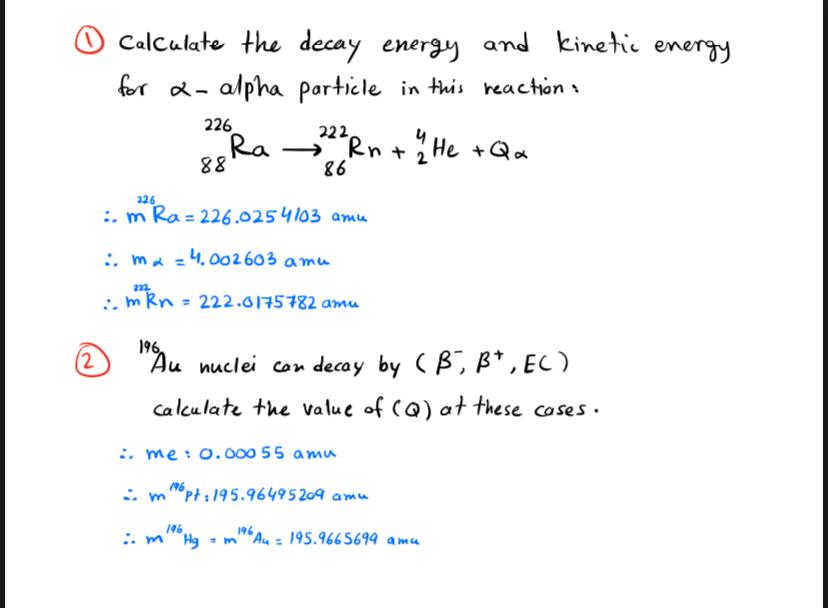 ① Calculate the decay energy and kinetic energy
for α- alpha particle in this reaction:
²²⁶₈₈Ra → ²²²₈₆Rn + ⁴₂He + Qα
∴ m ²²⁶Ra = 226.0254103 amu
∴ mα = 4.002603 amu
∴ m ²²²Rn = 222.0175782 amu
② ¹⁹⁶Au nuclei can decay by (β⁻, β⁺, EC)
calculate the value of (Q) at these cases.
∴ me : 0.00055 amu
∴ m¹⁹⁶pt : 195.96495209 amu
∴ m¹⁹⁶Hg = m¹⁹⁶Au = 195.9665699 amu